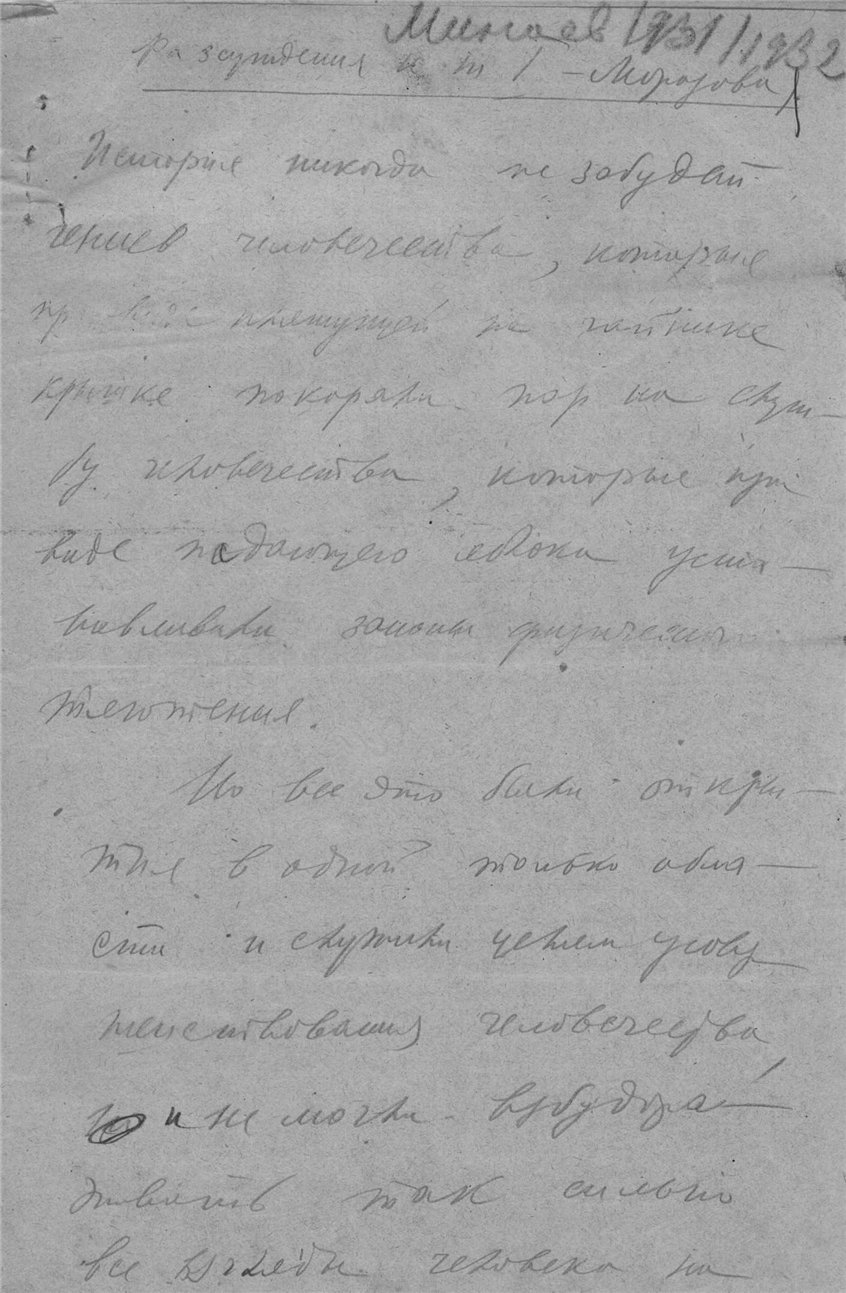 Минаев 1931/1932
Рассуждения к т 1 – Морозова
История никогда не забудет
гениев человечества, которые
при виде пляшущей на чайнике
крышке покоряли пар на служ-
бу человечества, которые при
виде падающего яблока уста-
навливали законы физического
тяготения.
Но все это были откры-
тия в одной только обла-
сти и служили целям усовер
шенствования человечества,
и не могли взбудора-
живать так сильно
все взгляды человека на